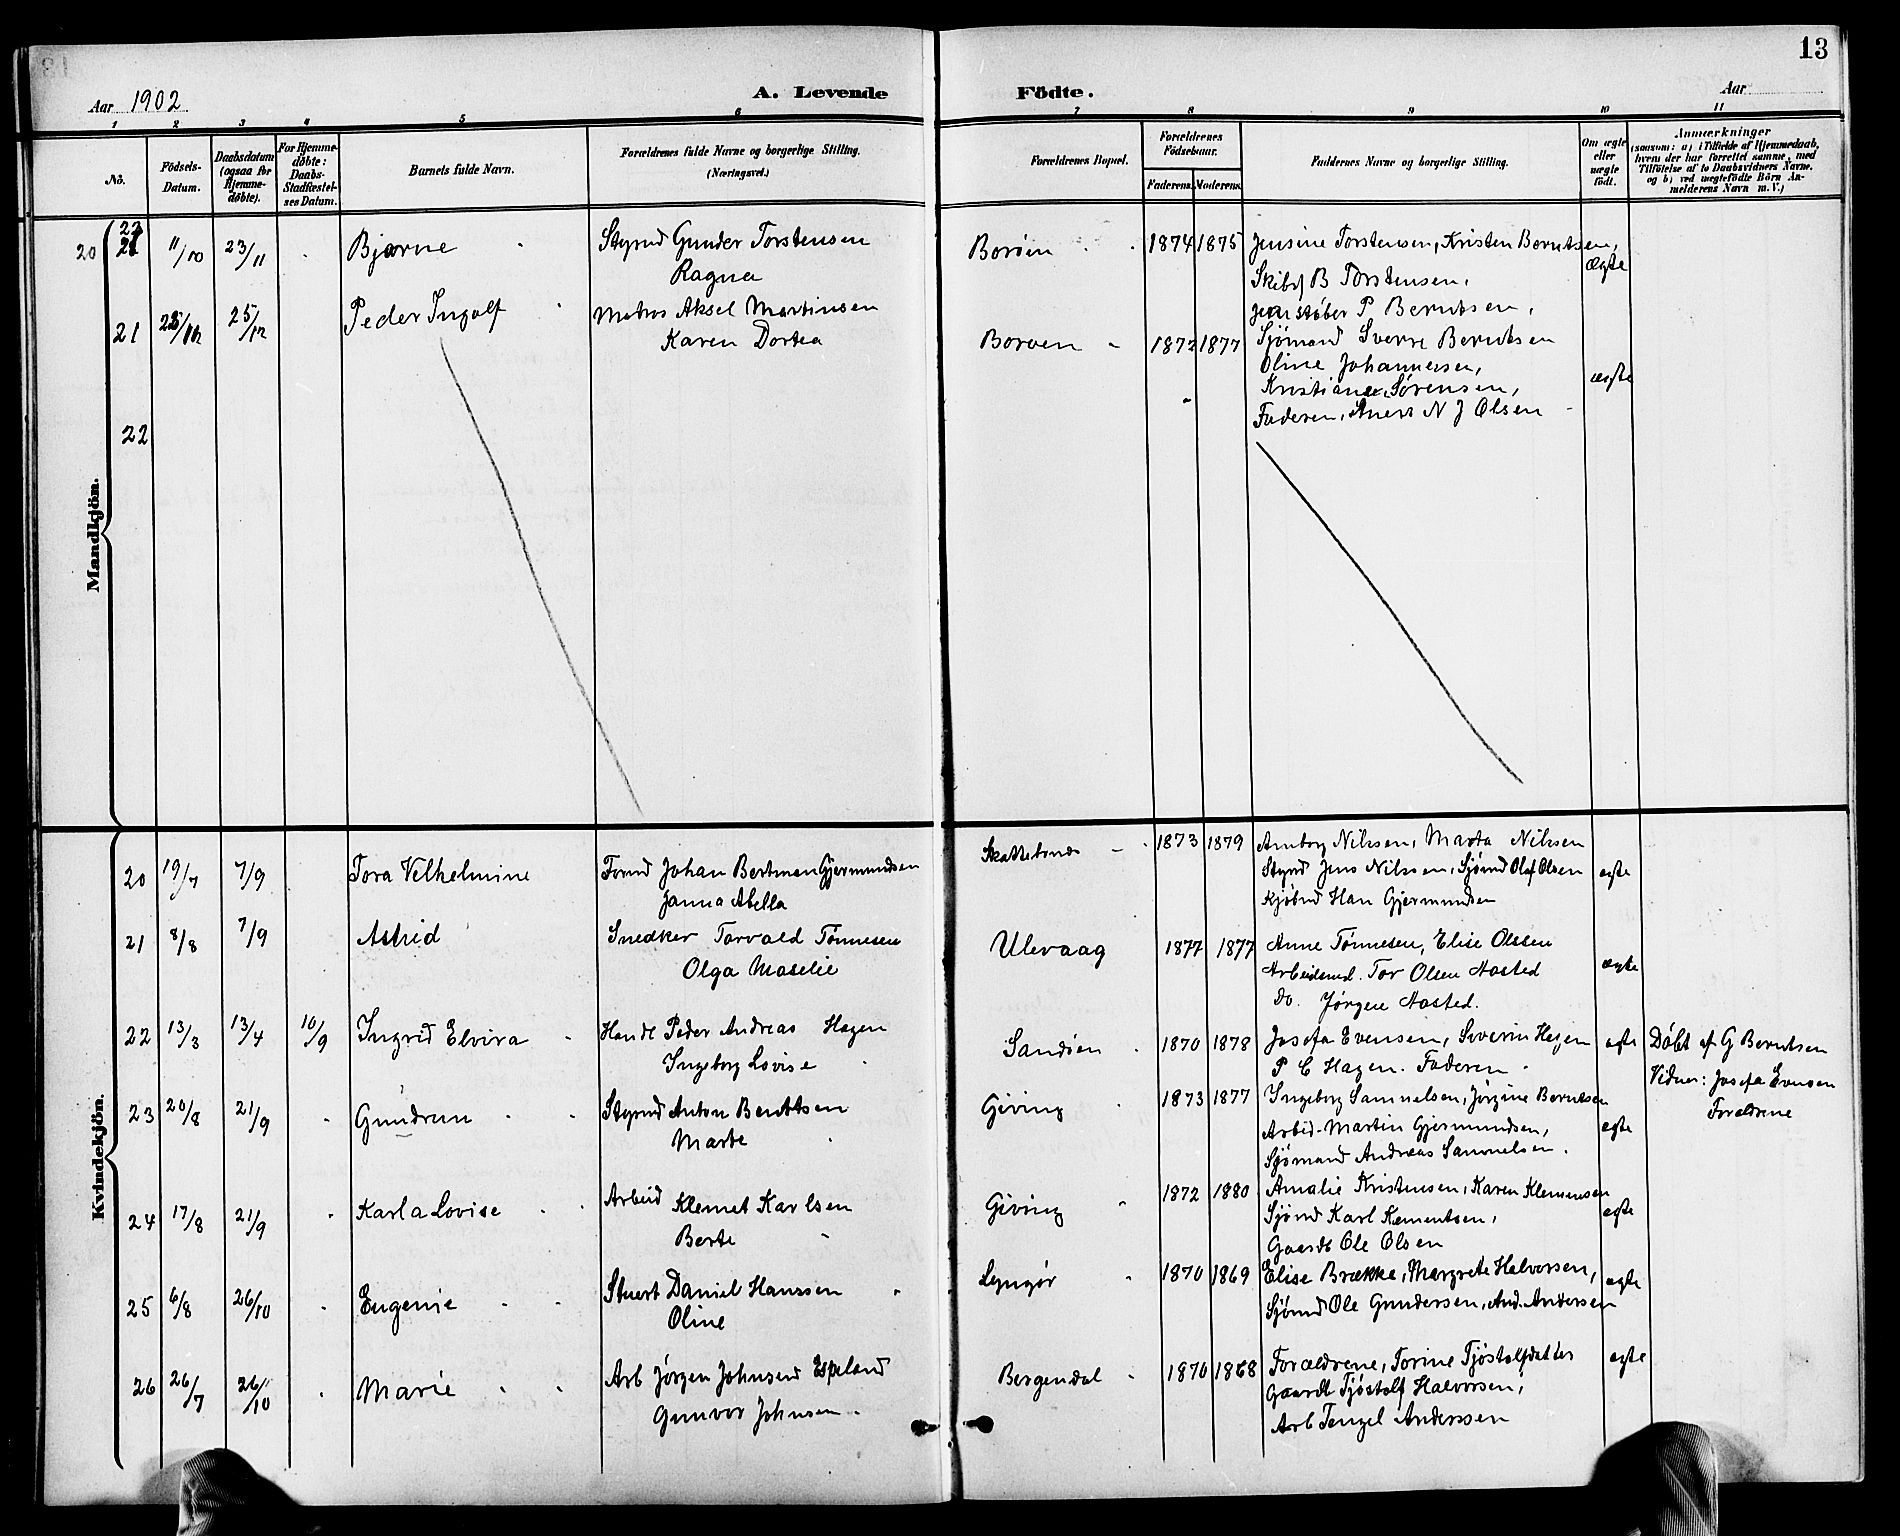 13
Aar 1902
A. Levende Födte.
Aar
1 2 3 4 5 6 7 8 9 10 11
No.
Födsels-Datum.
Daabsdatum (ogsaa for Hjemme-döbte).
For Hjemme-döbte: Daabs-Stadfæstel-ses Datum.
Barnets fulde Navn.
Forældrenes fulde Navne og borgerlige Stilling. (Næringsvei.)
Forældrenes Bopæl.
Forældrenes Födselsaar.
Faderens. Moderens.
Faddernes Navne og borgerlige Stilling.
Om ægte eller uægte födt.
Anmærkninger
(saasom: a) i Tilfælde af Hjemmedaab, hvem der har forrettet samme, med Tilföielse af to Daabsvidners Navne, og b) ved uægtefödte Börn An-melderens Navn m. V.)
Mandkjön.
20 21 11/10 23/11 Bjarne Styrmd Gunder Torstensen Borøen 1874 1875 Jensine Torstensen, Kristen Berntsen, ægte
Ragna Skibsf B Torstensen,
Jernstøber P Berntsen,
21 25/12 Peder Ingolf Matros Aksel Martinsen Borøen 1872 1877 Sjømand Sverre Berntsen
Karen Dortea Oline Johannesen, ægte
Kristiane Sørensen,
Faderen, N J Olsen
22
Kvindekjön.
20 19/7 7/9 Tora Vilhelmine Johan Bertman Gjermundsen 1873 1879 Amborg Nilssen, Marta Nilssen
Janna Abella Styrmd Jens Nilssen, Sjømd Olaf Olsen ægte
Kjøbmd Han Gjermundsen
21 8/8 7/9 Astrid Snedker Torvald Tønnesen Ulevaag 1877 1877 Anne Tønnesen, Elise Olssen
Olga Maselie Arbeidsmd. Tor Olsen Aasted ægte
Do. Jørgen Aasted.
22 13/3 13/4 10/9 Ingrid Elvira Handl Peder Andreas Hagen Sandøen 1870 1878 Josefa Evensen, Severin Hagen ægte Døbt af G Berntsen
Ingeborg Lovise P C Hagen. Faderen. Vidner: Josefa Evensen
Forældrene
23 20/8 21/9 Gundrun Styrmd Anton Berntsen Giving 1873 1877 Ingeborg Samuelsen, Jørgine Berntsen
Marte Arbeid. Martin Gjermundsen, ægte
Sjømand Andreas Samuelsen.
24 17/8 21/9 Karla Lovise Arbeid Klemet Karlsen Giving 1872 1880 Amalie Kristensen, Karen Klemensen
Berte Sjømd Karl Klementsen, ægte
Gaardb Ole Olsen
25 6/8 26/10 Eugenie Stuert Daniel Hanssen Lyngør 1870 1869 Elise Brække, Margrete Halvorsen, ægte
Oline Sjømd Ole Gundersen, And. Andersen
26 26/7 26/10 Marie Arb Jørgen Johnsen Espeland Bergendal 1870 1868 Forældrene, Torine Tjøstolfdatter ægte
Gunvor Johnsen. Gaardb Tjøstolf Halvorsen,
Arb Tengel Anderssen